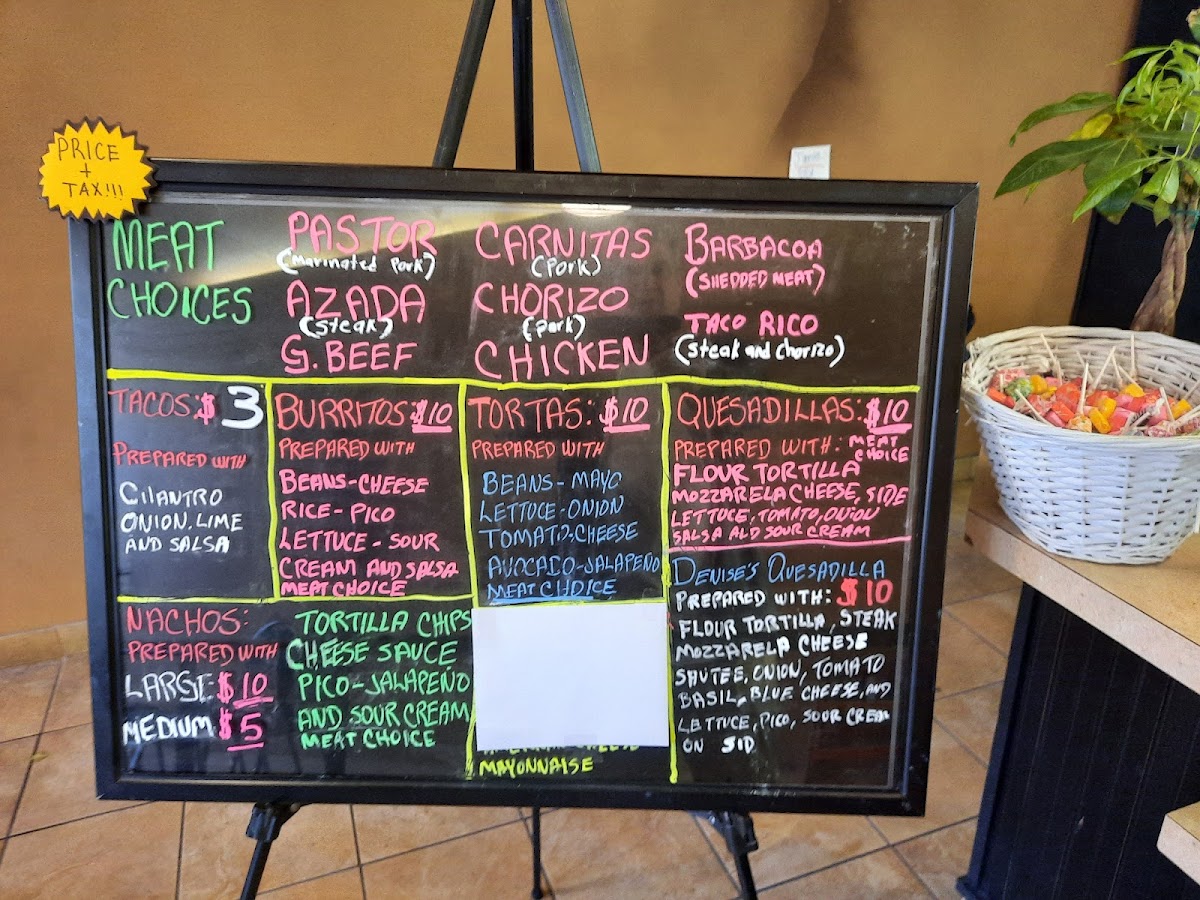 PRICE
+
TAX!!!
MEAT
CHOICES
PASTOR
(Marinated Pork)
AZADA
(Steak)
G. BEEF
CARNITAS
(Pork)
CHORIZO
(Pork)
CHICKEN
BARBACOA
(SHEDDED MEAT)
TACO RICO
(Steak and Chorizo)
TACOS: $3
PREPARED WITH
CILANTRO
ONION, LIME
AND SALSA
BURRITOS: $10
PREPARED WITH
BEANS-CHEESE
RICE-PICO
LETTUCE-SOUR
CREAM AND SALSA
MEAT CHOICE
TORTAS: $10
PREPARED WITH
BEANS-MAYO
LETTUCE-ONION
TOMATO-CHEESE
AVOCADO-JALAPEÑO
MEAT CHOICE
QUESADILLAS: $10
PREPARED WITH: MEAT
CHOICE
FLOUR TORTILLA
MOZZARELA CHEESE, SIDE
LETTUCE, TOMATO, ONION
SALSA AND SOUR CREAM
DENISE'S QUESADILLA
PREPARED WITH: $10
FLOUR TORTILLA, STEAK
MOZZARELA CHEESE
SAUTEE, ONION, TOMATO
BASIL, BLUE CHEESE, AND
LETTUCE, PICO, SOUR CREAM
ON SID
NACHOS:
PREPARED WITH
LARGE $10
MEDIUM $5
TORTILLA CHIPS
CHEESE SAUCE
PICO-JALAPEÑO
AND SOUR CREAM
MEAT CHOICE
CHEESE
MAYONNAISE